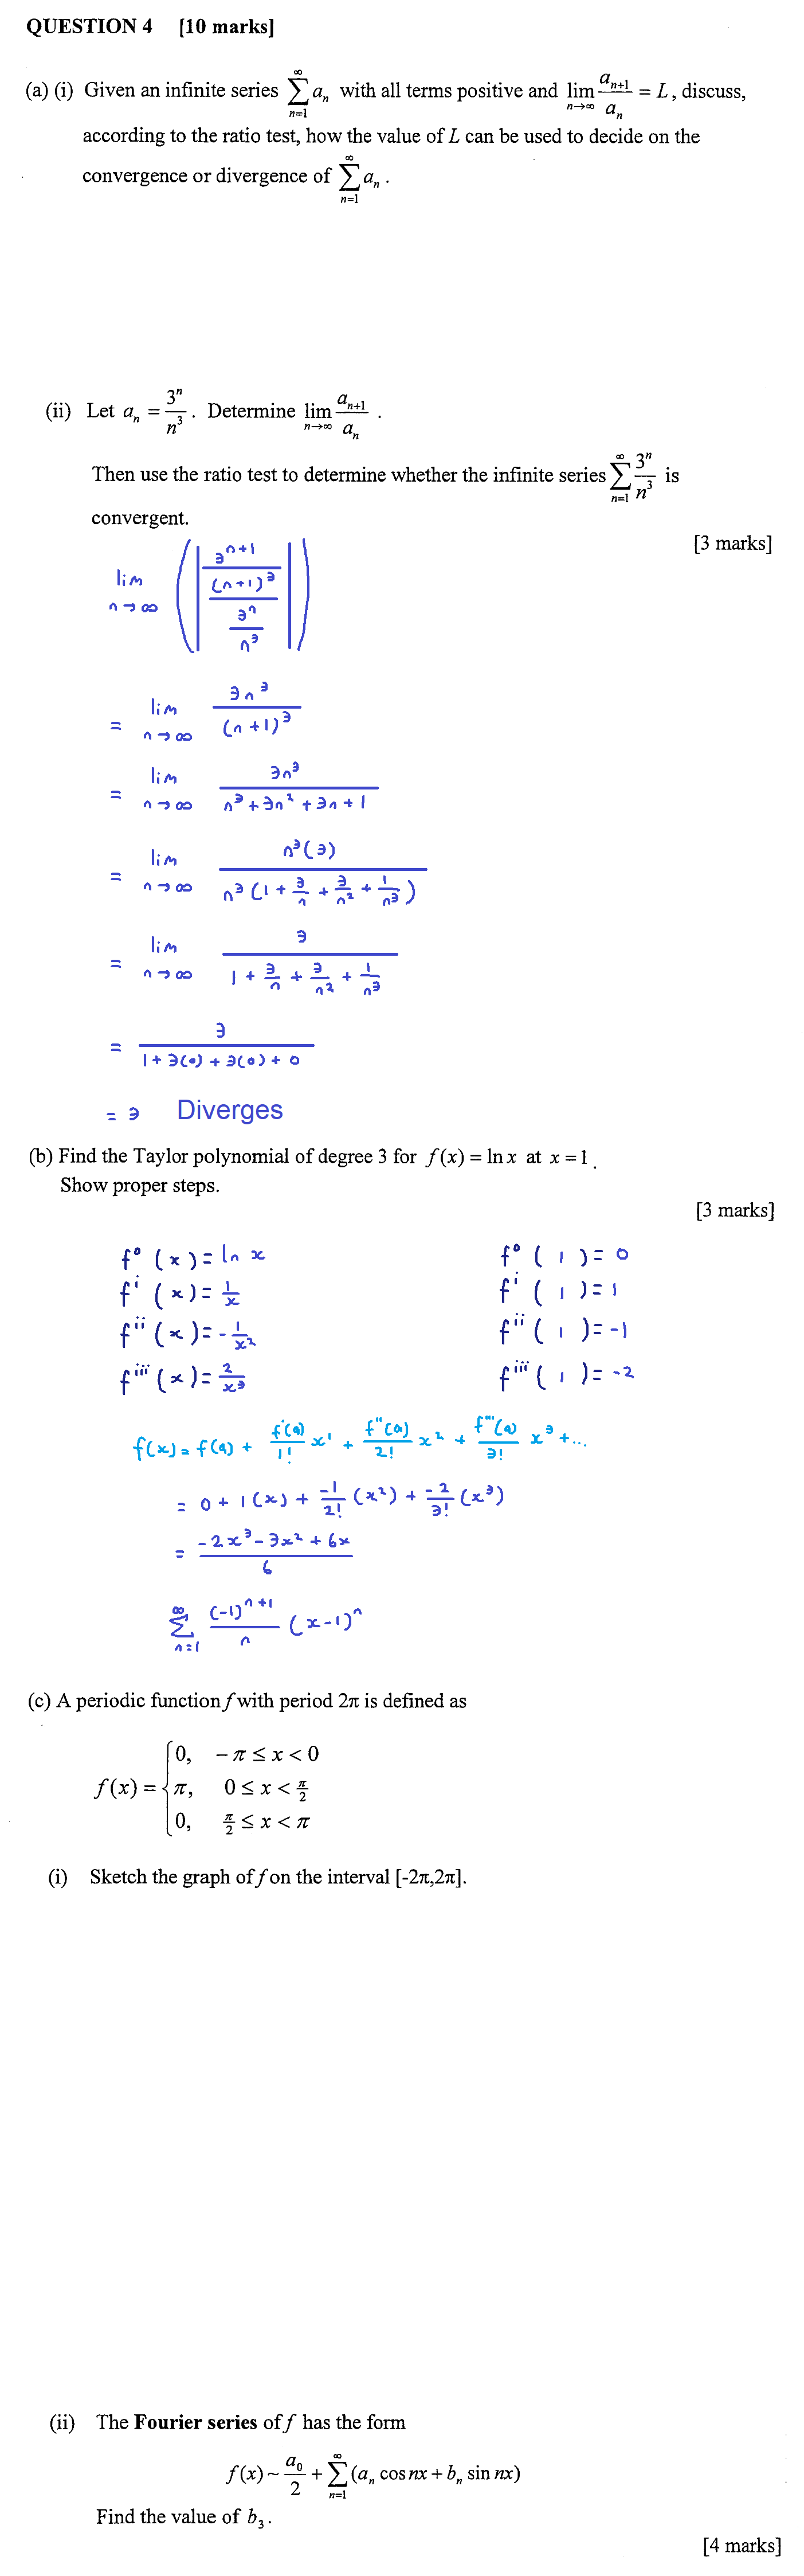 QUESTION 4 [10 marks]
(a) (i) Given an infinite series ∑_{n=1}^{∞} a_n with all terms positive and lim_{n→∞} a_{n+1}/a_n = L, discuss,
according to the ratio test, how the value of L can be used to decide on the
convergence or divergence of ∑_{n=1}^{∞} a_n .
(ii) Let a_n = 3^n/n^3. Determine lim_{n→∞} a_{n+1}/a_n .
Then use the ratio test to determine whether the infinite series ∑_{n=1}^{∞} 3^n/n^3 is
convergent.
[3 marks]
lim_{n→∞} (| (3^{n+1}/(n+1)^3) / (3^n/n^3) |)
= lim_{n→∞} 3n^3/(n+1)^3
= lim_{n→∞} 3n^3/(n^3+3n^2+3n+1)
= lim_{n→∞} n^3(3)/(n^3(1+3/n+3/n^2+1/n^3))
= lim_{n→∞} 3/(1+3/n+3/n^2+1/n^3)
= 3/(1+3(0)+3(0)+0)
= 3 Diverges
(b) Find the Taylor polynomial of degree 3 for f(x) = ln x at x = 1 .
Show proper steps.
[3 marks]
f^0 (x) = ln x f^0 (1) = 0
f^i (x) = 1/x f^i (1) = 1
f^ii (x) = -1/x^2 f^ii (1) = -1
f^iii (x) = 2/x^3 f^iii (1) = -2
f(x) = f(a) + f'(a)/1! x^1 + f''(a)/2! x^2 + f'''(a)/3! x^3 + ...
= 0 + 1(x) + -1/2! (x^2) + -2/3! (x^3)
= (-2x^3 - 3x^2 + 6x)/6
∑_{n=1}^{∞} (-1)^{n+1}/n (x-1)^n
(c) A periodic function f with period 2π is defined as
f(x) = { 0, -π ≤ x < 0
π, 0 ≤ x < π/2
0, π/2 ≤ x < π
(i) Sketch the graph of f on the interval [-2π,2π].
(ii) The Fourier series of f has the form
f(x) ~ a_0/2 + ∑_{n=1}^{∞} (a_n cos nx + b_n sin nx)
Find the value of b_3.
[4 marks]